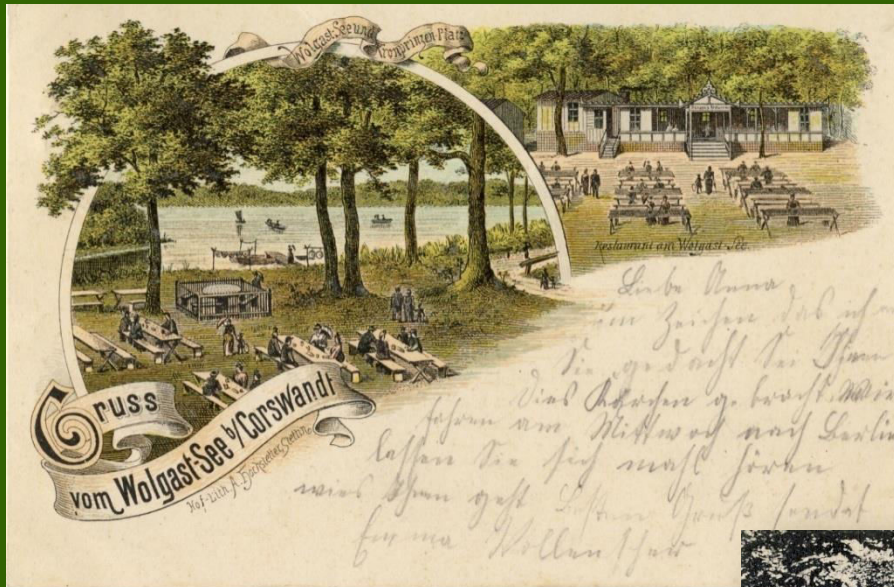 Wolgast-See und Kronprinzen-Platz
Restaurant am Wolgast-See
Gruss
vom Wolgast-See b/Corswandt
Hof-Lith. A. Hochstetter, Stettin.
Liebe Anna
im Zeichen das ich
Sie gedacht Sei Ihnen
dies Kärchen gebracht Wir
fahren am Mittwoch nach Berlin
lassen Sie sich mahl hören
wies Ihnen geht Besten Gruß sendet
Emma